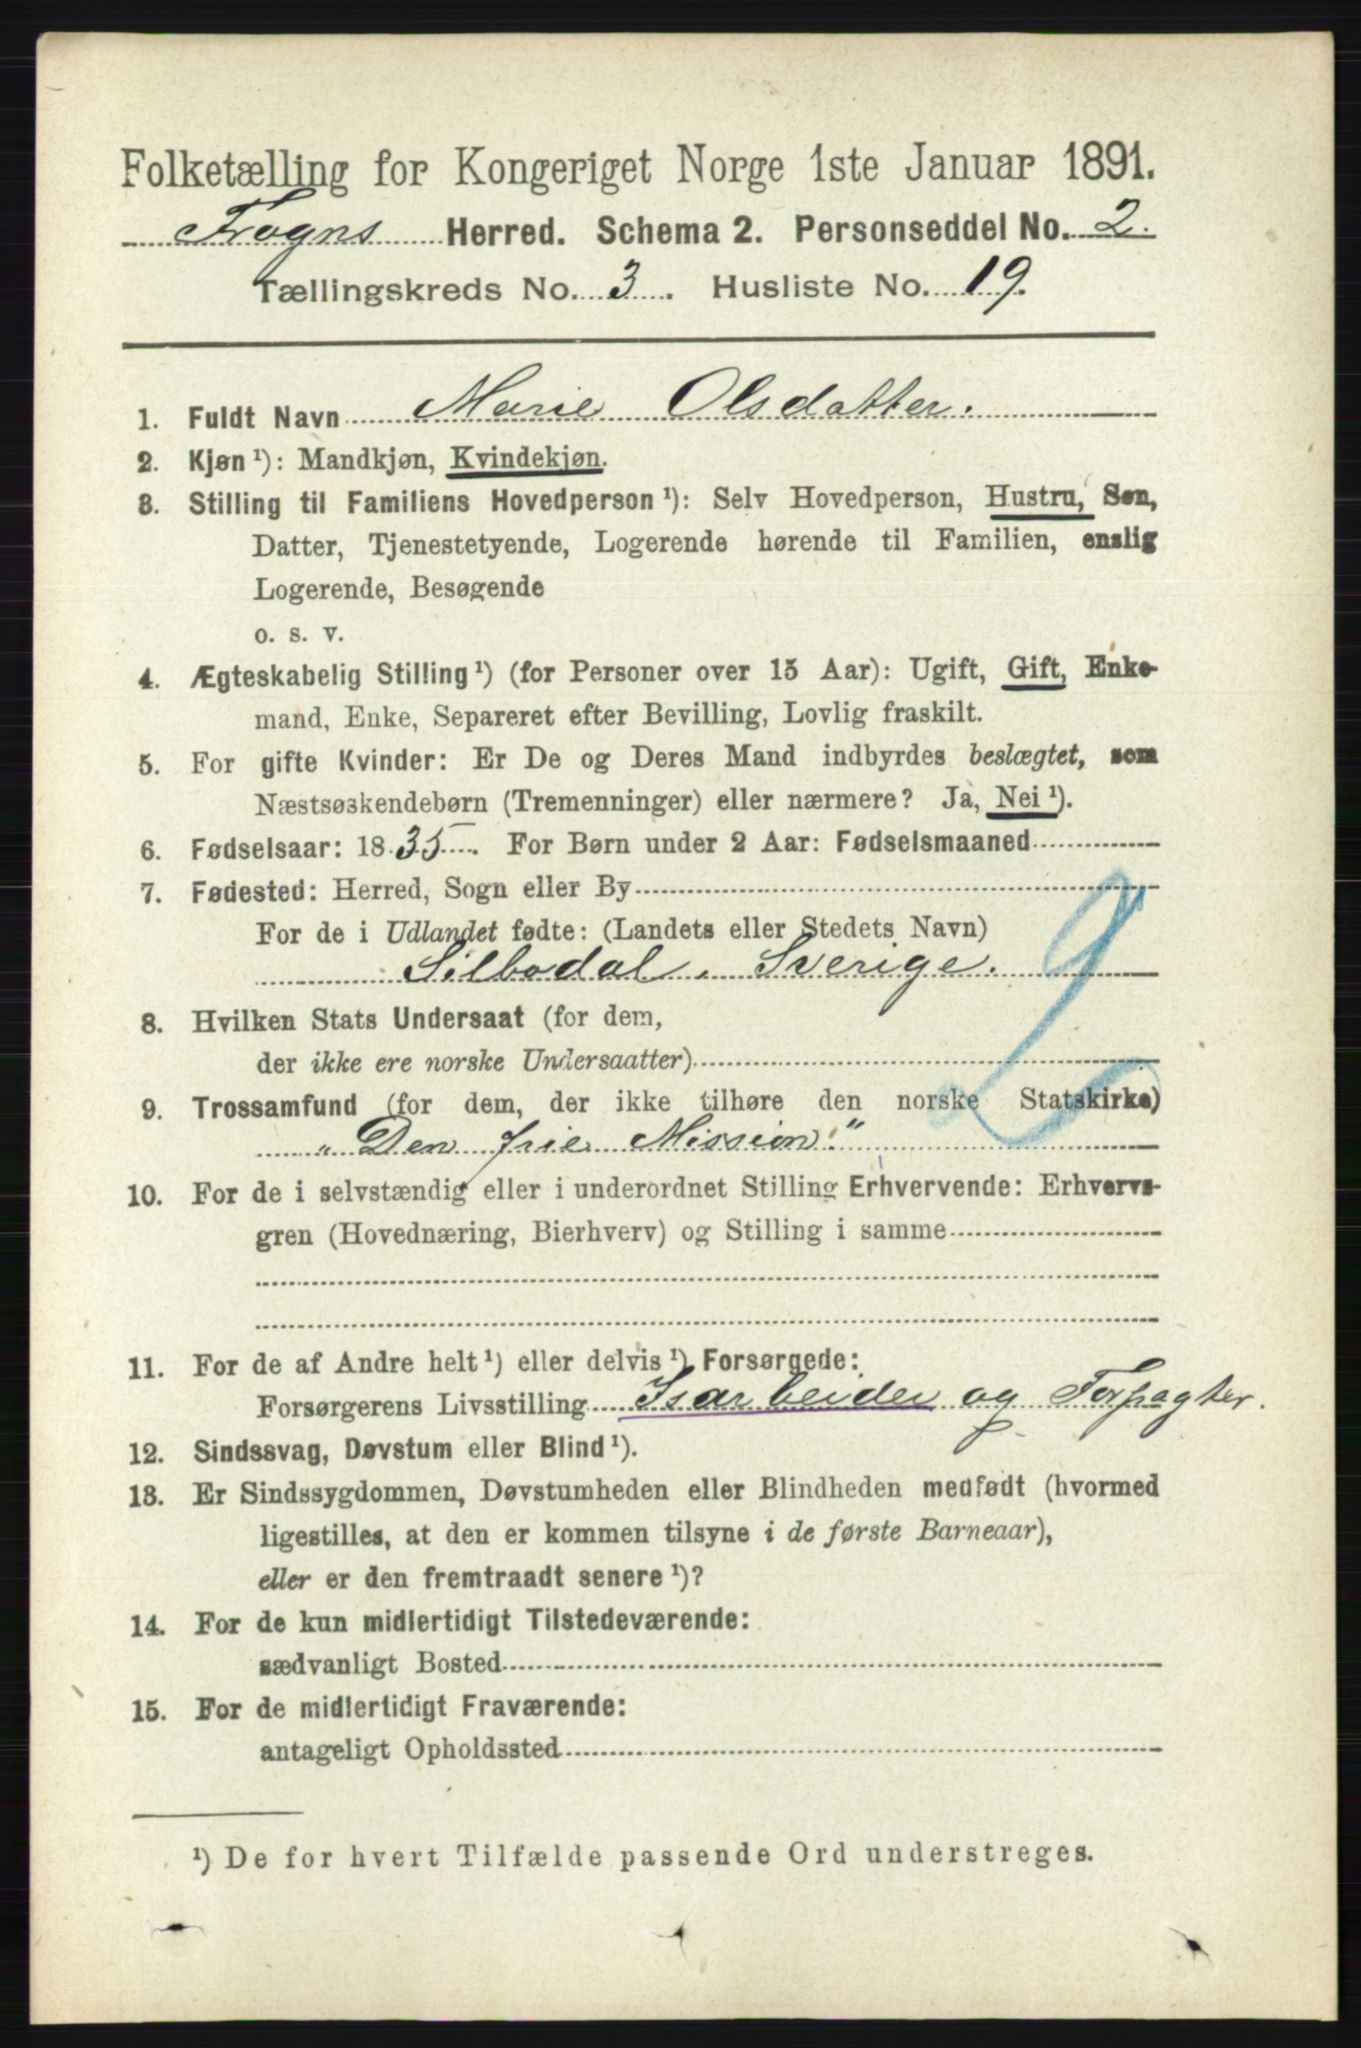 Folketælling for Kongeriget Norge 1ste Januar 1891.
Frogns Herred. Schema 2. Personseddel No. 2.
Tællingskreds No. 3. Husliste No. 19.
1. Fuldt Navn Marie Olsdatter.
2. Kjøn¹): Mandkjøn, Kvindekjøn.
3. Stilling til Familiens Hovedperson¹): Selv Hovedperson, Hustru, Søn,
Datter, Tjenestetyende, Logerende hørende til Familien, enslig
Logerende, Besøgende
o. s. v.
4. Ægteskabelig Stilling¹) (for Personer over 15 Aar): Ugift, Gift, Enke-
mand, Enke, Separeret efter Bevilling, Lovlig fraskilt.
5. For gifte Kvinder: Er De og Deres Mand indbyrdes beslægtet, som
Næstsøskendebørn (Tremenninger) eller nærmere? Ja, Nei¹).
6. Fødselsaar: 1835. For Børn under 2 Aar: Fødselsmaaned
7. Fødested: Herred, Sogn eller By
For de i Udlandet fødte: (Landets eller Stedets Navn)
Silbodal, Sverige.
8. Hvilken Stats Undersaat (for dem,
der ikke ere norske Undersaatter)
9. Trossamfund (for dem, der ikke tilhøre den norske Statskirke)
"Den frie Mission."
10. For de i selvstændig eller i underordnet Stilling Erhvervende: Erhvervs-
gren (Hovednæring, Bierhverv) og Stilling i samme
11. For de af Andre helt¹) eller delvis¹) Forsørgede:
Forsørgerens Livsstilling Isarbeider og Forpagter.
12. Sindssvag, Døvstum eller Blind¹).
13. Er Sindssygdommen, Døvstumheden eller Blindheden medfødt (hvormed
ligestilles, at den er kommen tilsyne i de første Barneaar),
eller er den fremtraadt senere¹)?
14. For de kun midlertidigt Tilstedeværende:
sædvanligt Bosted
15. For de midlertidigt Fraværende:
antageligt Opholdssted
¹) De for hvert Tilfælde passende Ord understreges.